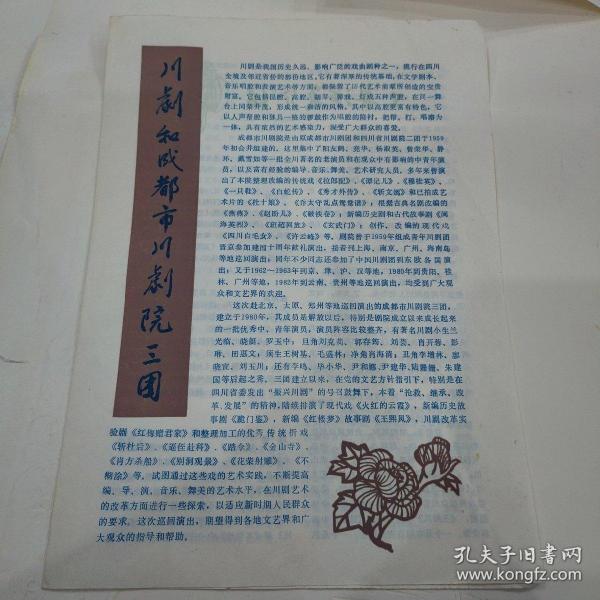 川剧和成都市川剧院三团
川剧是我国历史久远、影响广泛的戏曲剧种之一，流行在四川
全境及邻近省份的部份地区。它有着深厚的传统基础，在文学剧本、
音乐唱腔和表演艺术等方面，都保留了历代艺术前辈所创造的宝贵
财富。它包括昆腔、高腔、胡琴、弹戏、灯戏五种声腔，在同一舞
台上同荣并茂，形成统一和谐的风格。其中以高腔更富有特色，它
以人声帮腔和独具一格的锣鼓作为唱腔的陪衬，把帮、打、唱溶为
一体，具有浓烈的艺术感染力，深受广大群众的喜爱。
成都市川剧院是由原成都市川剧团和四川省川剧院二团于1959
年初合并组建的。这里集中了阳友鹤、竞华、杨淑英、曾荣华、静
环、戴雪如等一批全川著名的老演员和在观众中有影响的中青年演
员，以及富有经验的编导、音乐、舞美、艺术研究人员。多年来曾演
出了本院整理改编的传统戏《拉郎配》、《谭记儿》、《穆桂英》、
《一只鞋》、《白蛇传》、《秀才外传》、《斩文娥》和已拍成艺
术片的《杜十娘》、《乔太守乱点鸳鸯谱》；根据古典名剧改编的
《燕燕》、《赵盼儿》、《破铁券》；新编历史剧和古代故事剧《闽
海英烈》、《班超回族》、《玄武门》；创作、改编的现代戏
《四川白毛女》、《许云峰》等。剧院曾于1959年组成青年川剧团
晋京参加建国十周年献礼演出，接着到上海、南京、广州、海南岛
等地巡回演出；同年不少同志还参加了中国川剧团到东欧各国演
出；又于1962～1963年到京、津、沪、汉等地；1980年到贵阳、桂
林、广州等地，1982年到云南、贵州等地巡回演出，均受到广大观
众和文艺界的欢迎。
这次赴北京、太原、郑州等地巡回演出的成都市川剧院三团，
建立于1980年，其成员是解放以后，特别是剧院成立以来成长起来
的一批优秀中、青年演员，演员阵容比较整齐，有著名川剧小生兰
光临、晓艇、罗玉中；旦角刘克莉、郭存筠、刘芸、肖开蓉、彭
琳、田惠文；须生王树基、毛盛林；净角肖海清；丑角李增林、廖
晓宜、刘玉川；还有李鸣、毕小华、尹和娜、尹建华、陆丽姗、朱建
国等后起之秀。三团建立以来，在党的文艺方针指引下，特别是在
四川省委发出“振兴川剧”的号召鼓舞下，本着“抢救、继承、改
革、发展”的精神，陆续排演了现代戏《火红的云霞》，新编历史故
事剧《跪门鉴》，新编《红楼梦》故事剧《王熙凤》，川剧改革实
验剧《红梅赠君家》和整理加工的优秀传统折戏
《斩杜后》、《逼侄赴科》、《踏伞》、《金山寺》、
《肖方杀船》、《别洞观景》、《花荣射雕》、《不
糊涂》等。试图通过这些戏的艺术实践，不断提高
编、导、演、音乐、舞美的艺术水平，在川剧艺术
的改革方面进行一些探索，以适应新时期人民群众
的要求。这次巡回演出，期望得到各地文艺界和广
大观众的指导和帮助。
孔夫子旧书网
www.kongfz.com